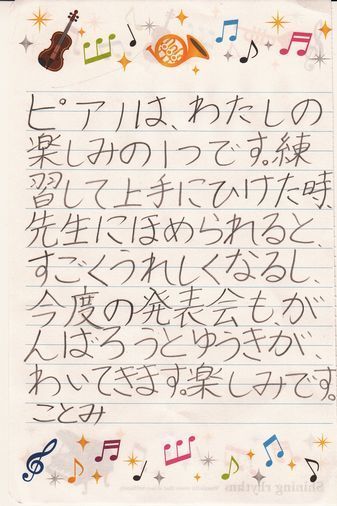 ピアノは、わたしの
楽しみの1つです。練
習して上手にひけた時、
先生にほめられると、
すごくうれしくなるし、
今度の発表会も、が
んばろうとゆうきが、
わいてきます。楽しみです。
ことみ
Shining rhythm